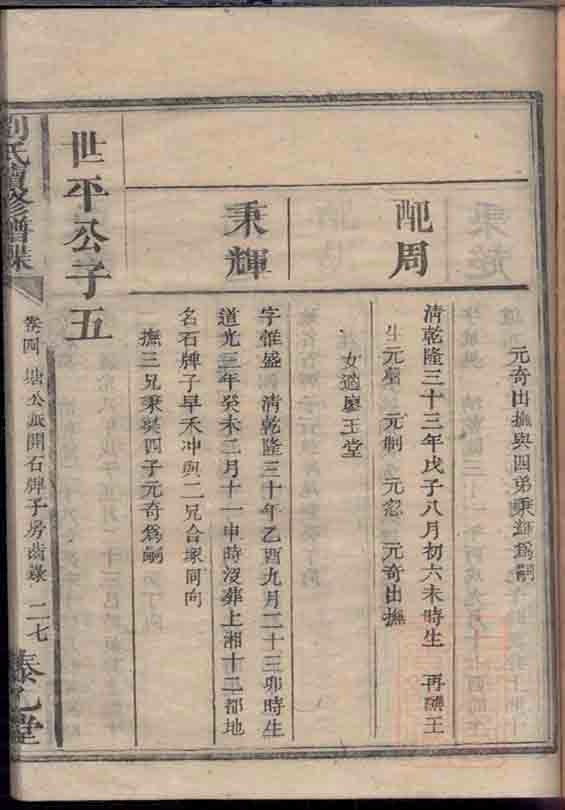 元奇出撫與四弟秉輝爲嗣
配周
清乾隆三十三年戊子八月初六未時生 再醮王
生元 元制 元 元奇出撫
女適廖王堂
秉輝
字惟盛 清乾隆三十年乙酉九月二十三卯時生
道光三年癸未二月十一申時沒葬上湘十二都地
名石牌子早禾冲與二兄合塚同向
撫三兄秉 四子元奇爲嗣
世平公子五
劉氏續修譜牒
卷四 塘公派開石牌子房齒錄 二七